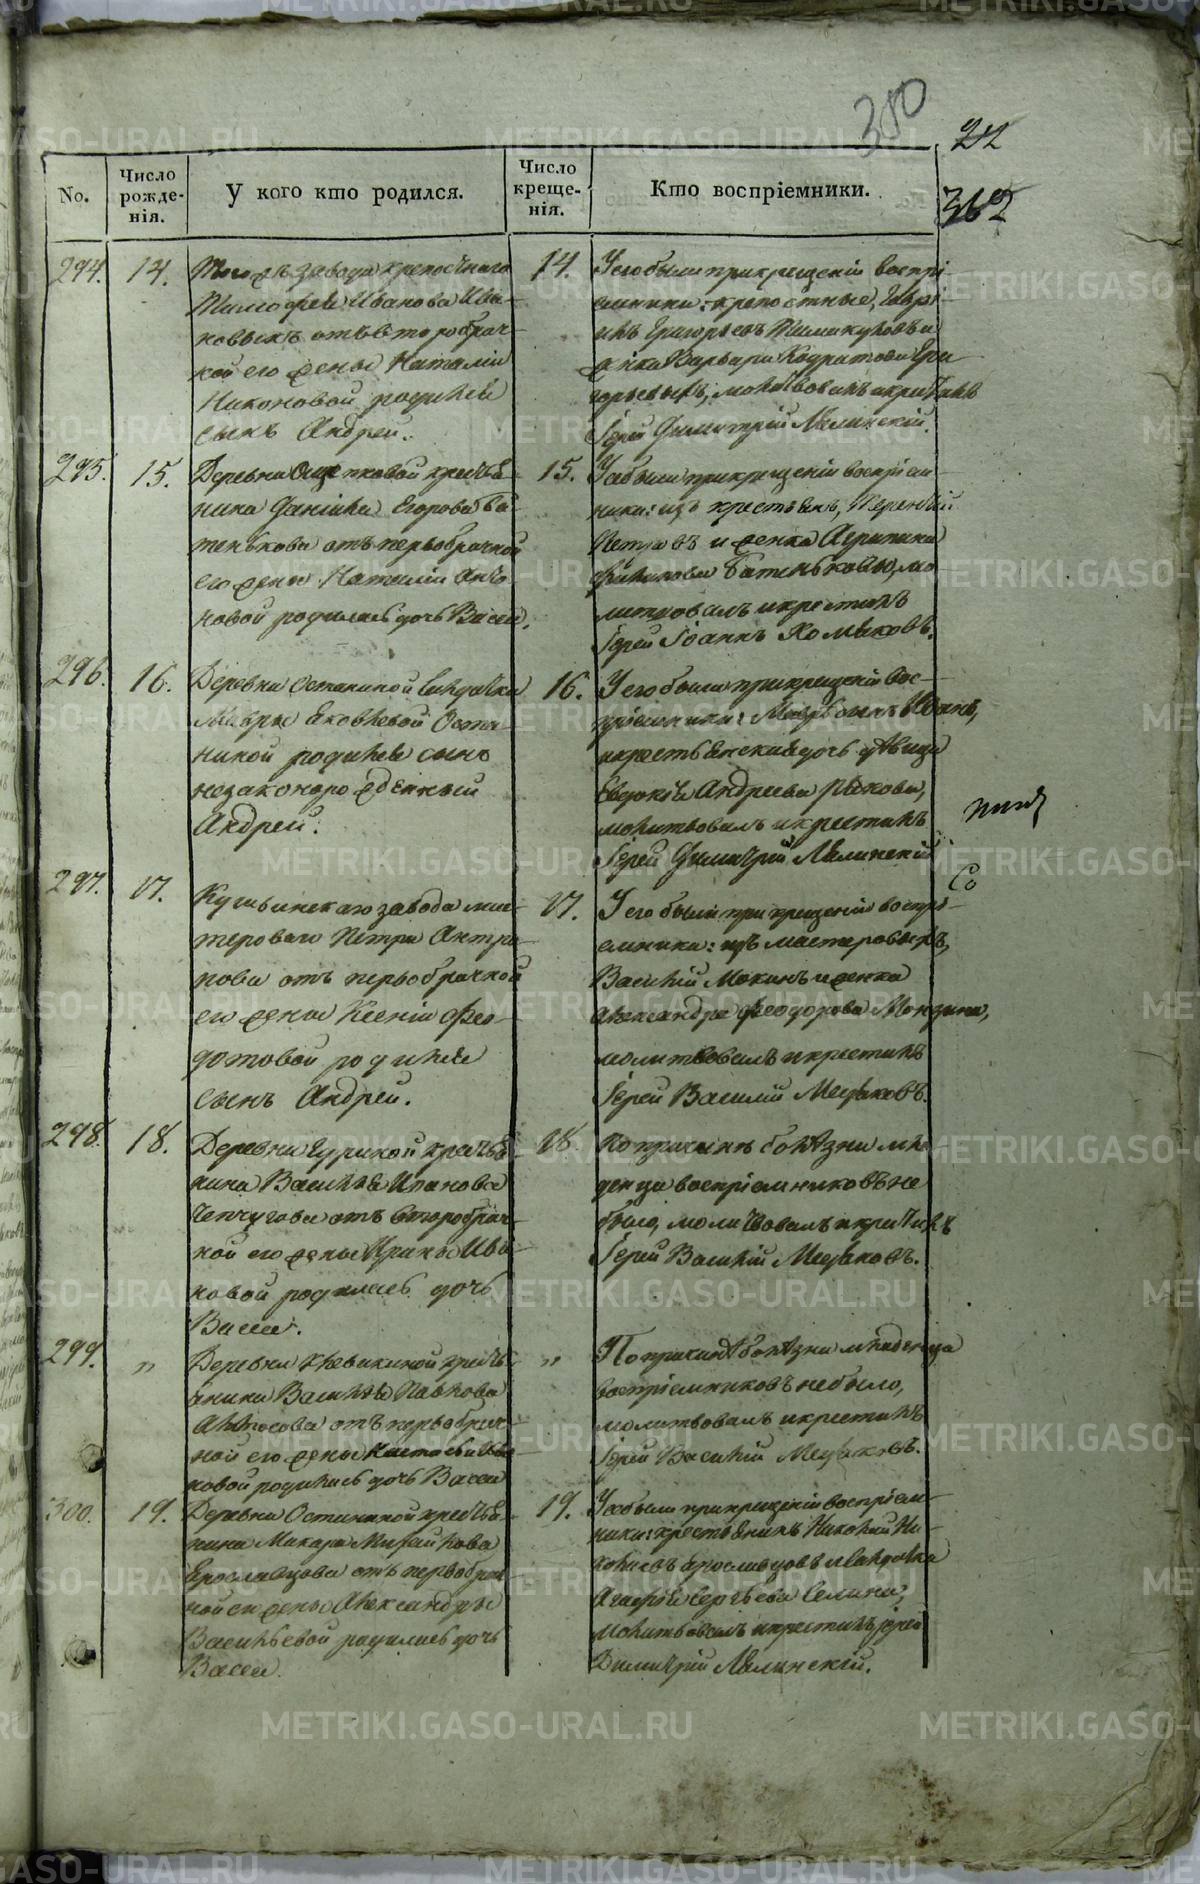 380
22
362
No.
Число рожде- нія.
У кого кто родился.
Число креще- нія.
Кто воспріемники.
294. 14.
Того жъ завода крепостнаго
Тимофея Иванова Ива-
новыхъ отъ второбрач-
ной его жены Наталіи
Никоновой родился
сынъ Андрей.
14.
У сего были при крещеніи воспрі-
емники: крепостные,
Григорьевъ
женка Варвара Кодратова Гри
горьевыхъ, молитвовалъ и крестилъ
Іерей Димитрій Ляпинскій.
295. 15.
Деревни крестья
нина Даніила Егорова Ба-
тенькова отъ первобрачной
его жены Наталіи
новой родилась дочь Васса.
15.
У сей были при крещеніи воспріем
ники: изъ крестьянъ, Терентій
Петровъ и женка Агрипина
Батенькова, мо-
литвовалъ и крестилъ
Іерей Іоаннъ Хомяковъ.
296. 16.
Деревни Останиной солдатки
Мавры Яковлевой Оста-
ниной родился сынъ
незаконорожденный
Андрей.
16.
У сего были при крещеніи вос-
пріемники:
и крестьянская дочь девица
Евдокія Андреева Рякова,
молитвовалъ и крестилъ
Іерей Димитрій Ляпинскій
297. 17.
Кушвинскаго завода мас-
тероваго Петра Антро-
пова отъ первобрачной
его жены Ксеніи Фео-
дотовой родился
сынъ Андрей.
17.
У сего были при крещеніи воспрі-
емники: изъ мастеровыхъ,
Василій Мокинъ и женка
Александра Феодорова
молитвовалъ и крестилъ
Іерей Василій
Со
298. 18.
Деревни крестья
нина Василья Иванова
отъ второбрач-
ной его жены Ирины Ива-
новой родилась дочь
Васса.
18.
По причинѣ болѣзни мла-
денца воспріемниковъ не
было, молитвовалъ и крестилъ
Іерей Василій
299. „
Деревни крестья
нина Василья Павлова
отъ первобрач-
ной его жены Настасьи Ива
новой родилась дочь Васса
„
По причинѣ болѣзни младенца
воспріемниковъ не было,
молитвовалъ и крестилъ
Іерей Василій
300. 19.
Деревни Останиной крестья
нина Макара Михайлова
Ярославцова отъ первобрач
ной его жены Александры
Васильевой родилась дочь
Васса.
19.
У сей были при крещеніи воспріем-
ники: крестьянинъ Николай Ни-
колаевъ Ярославцовъ и солдатка
Агафія Сергѣева Селина,
молитвовалъ и крестилъ іерей
Димитрій Ляпинскій.
METRIKI.GASO-URAL.RU